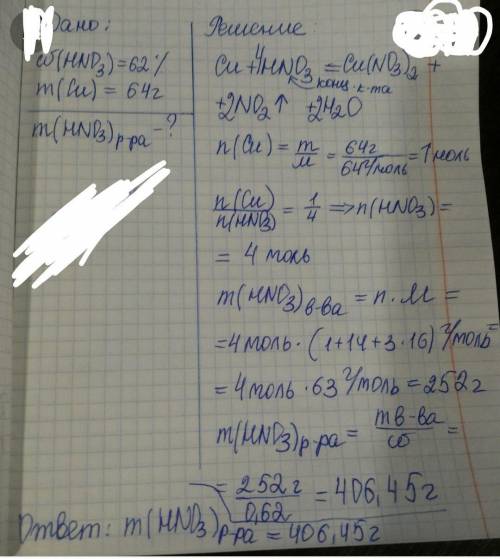 Дано:
ω(HNO₃)=62%
m(Cu) = 64г
m(HNO₃)р-ра - ?
Решение
Cu + 4HNO₃ = Cu(NO₃)₂ +
конц. к-та
+2NO₂↑ +2H₂O
n(Cu) = m/M = 64г/64г/моль = 1 моль
n(Cu)/n(HNO₃) = 1/4 ⇒ n(HNO₃) =
= 4 моль
m(HNO₃)в-ва = n · M =
=4 моль · (1+14+3·16) г/моль =
= 4 моль · 63 г/моль = 252 г
m(HNO₃)р-ра = mв-ва/ω =
= 252 г/0,62 = 406,45 г
Ответ: m(HNO₃)р-ра = 406,45 г